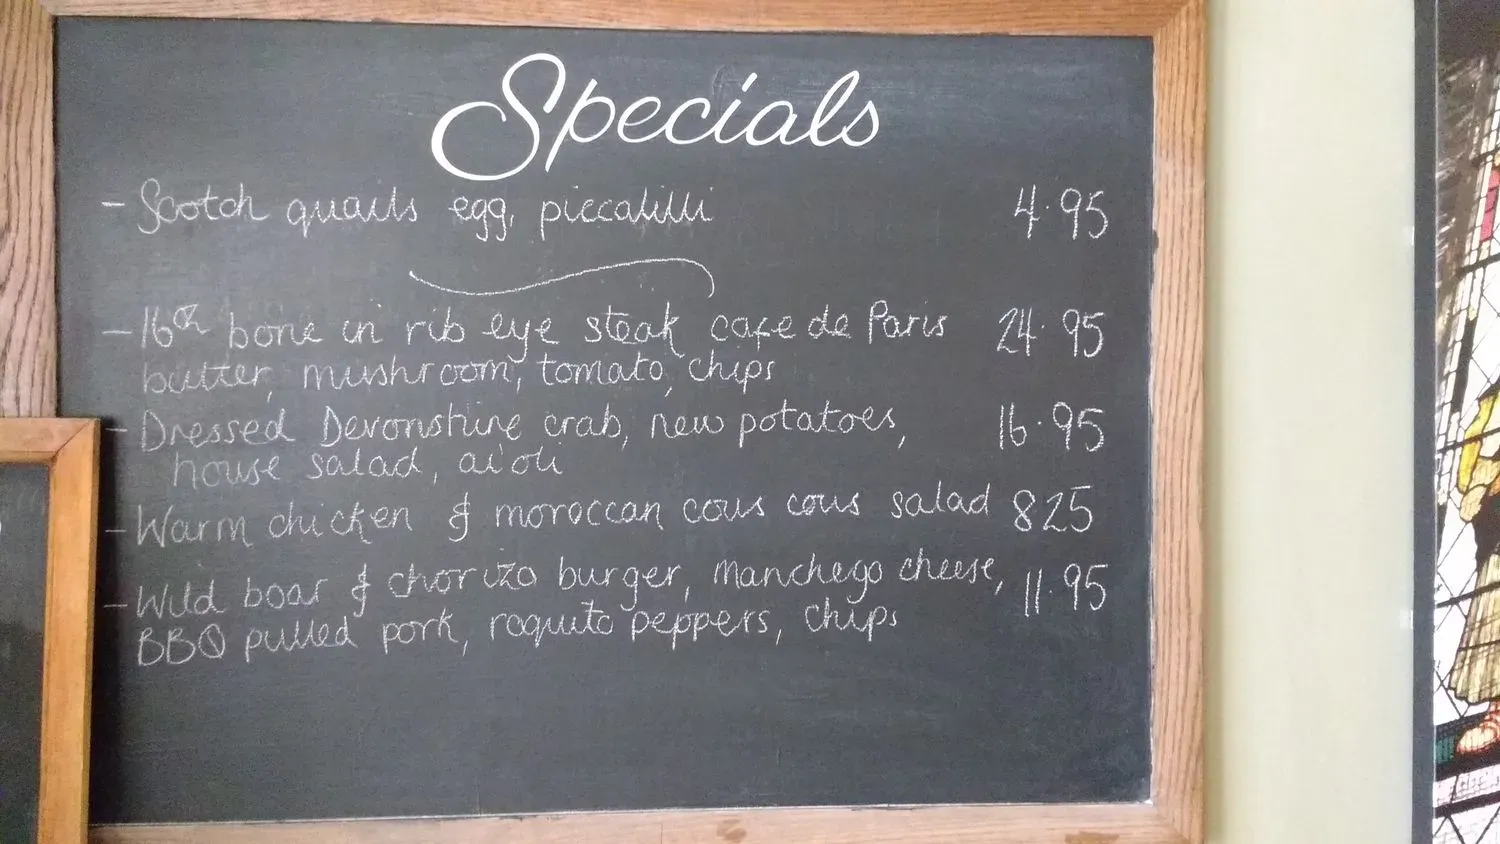 Specials
- Scotch quails egg, piccalilli 4.95
- 16oz bone in rib eye steak cafe de Paris 24.95
butter, mushroom, tomato, chips
- Dressed Devonshire crab, new potatoes, 16.95
house salad, aioli
- Warm chicken & moroccan cous cous salad 825
- Wild boar & chorizo burger, Manchego cheese, 11.95
BBQ pulled pork, roquito peppers, chips